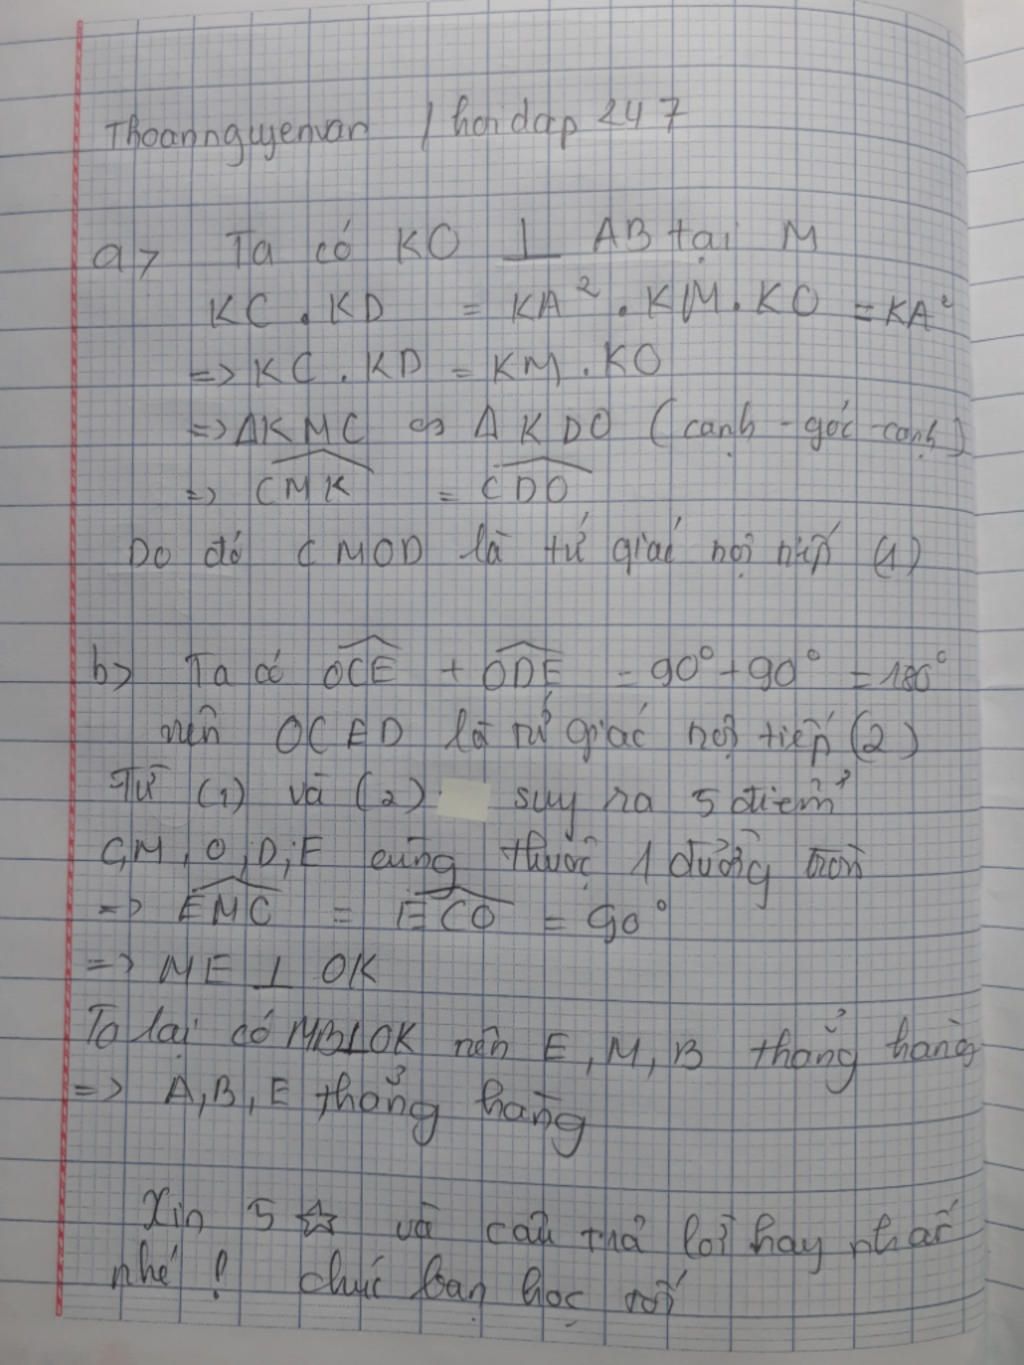 Thoannguyenvan / hoidap 247
a> Ta có KO ⊥ AB tại M
KC . KD = KA² . KM . KO = KA²
=> KC . KD = KM . KO
=> ΔKMC ∽ ΔKDO (cạnh - góc - cạnh)
=> CMK = CDO
Do đó CMOD là tứ giác nội tiếp (1)
b> Ta có OCE + ODE = 90° + 90° = 180°
nên OCED là tứ giác nội tiếp (2)
Từ (1) và (2) suy ra 5 điểm
C, M, O, D, E cùng thuộc 1 đường tròn
=> EMC = ECO = 90°
=> ME ⊥ OK
Ta lại có MB⊥OK nên E, M, B thẳng hàng
=> A, B, E thẳng hàng
Xin 5 ☆ và câu trả lời hay nhất
nhé ! chúc bạn học tốt